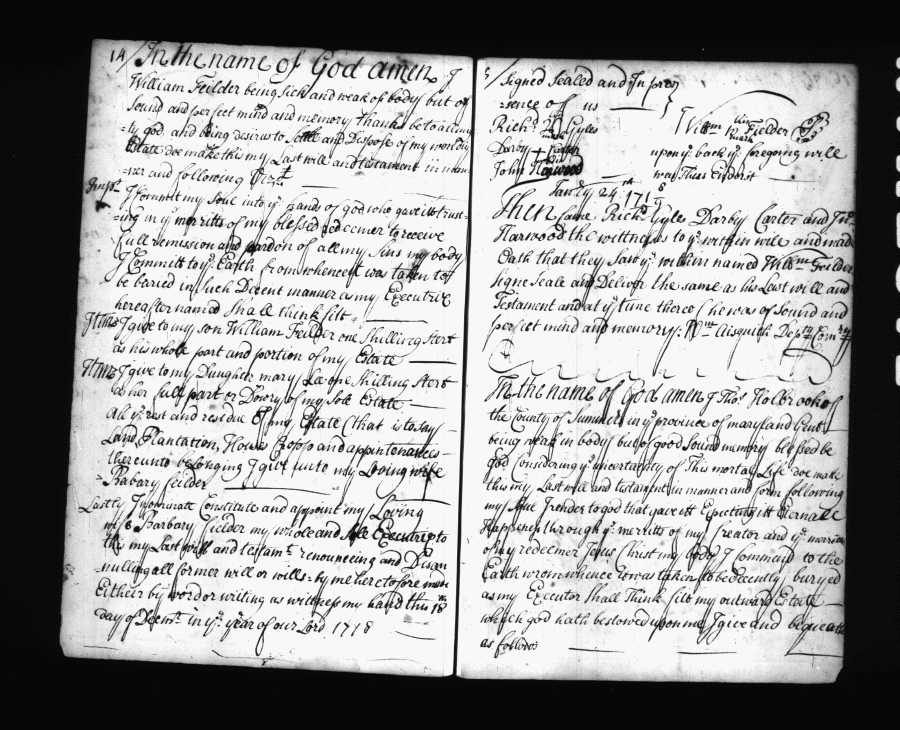 14/ In the name of God amen, I
William Feilder being Sick and weak of body but of
Sound and perfect mind and memory thanks be to almigh
=ty god and being desirus to Settle and Dispose of my worldly
Estate doe make this my Last will and testament in man=
=ner and following Vizt
Impr I Committ my Soul into ye hands of god who gave it trust=
=ing in ye merritts of my blessed redeemer to receive
full remission and pardon of all my Sins my body
I Committ to ye Earth from whence it was taken to
be buried in Such Decent manner as my Executrix
hereafter named Shall think fitt
Itims I give to my son William Feilder one Shilling Sterl
as his whole part and portion of my Estate
Itims I give to my Daughter mary Lee one Shilling Sterl
as her full part or Dowry of my Sole Estate
all ye rest and residue of my Estate (that is to say
Land, Plantation, House Cropps and appintenances
thereunto belonging I give unto my Loving wife
Babary Feilder
Lastly I nominate Constitute and appoint my Loving
wife Barbary Feilder my whole and Sole Executrix to
this my Last will and testamt renounceing and Disan
=nulling all former will or wills by me heretofore made
Eitheir by word or writing as wittness my hand this 18
day of Decmr in ye year of our Lord 1718
/ Signed Sealed and In pres
=sence of us
Richd Gyles
Darby + Carter
mark
John Harwood
Willm R Feilder
mark
upon ye back ye foregoing will
was Thus Endorst
Janry 24th 171
Then Came Richd Gyles Darby Carter and Jno
Harwood the wittneses to ye within wile and made
Oath that they Saw ye within named Willm Feilder
signe Seale and Deliver the same as his Last will and
Testament and at ye time thereof he was of Sound and
perfect mind and memory: Wm Aisquith Depty Comry
In the name of God amen I Thos Holbrook of
the County of Summersett in ye province of maryland Gent
being weak in body but of good Sound memory blessed be
God Considering ye uncertainty of This mortal Life doe make
this my Last will and testament in manner and form following
my Soul I render to god that gave itt Expecting itt Eternall
Happiness through ye merritts of my Creator and ye merritts
of my redeemer Jesus Christ my body I Command to the
Earth from whence it was taken to be decently buryed
as my Executor shall Think fitt my outward Estate
which god hath bestowed upon me I give and bequeath
as follows